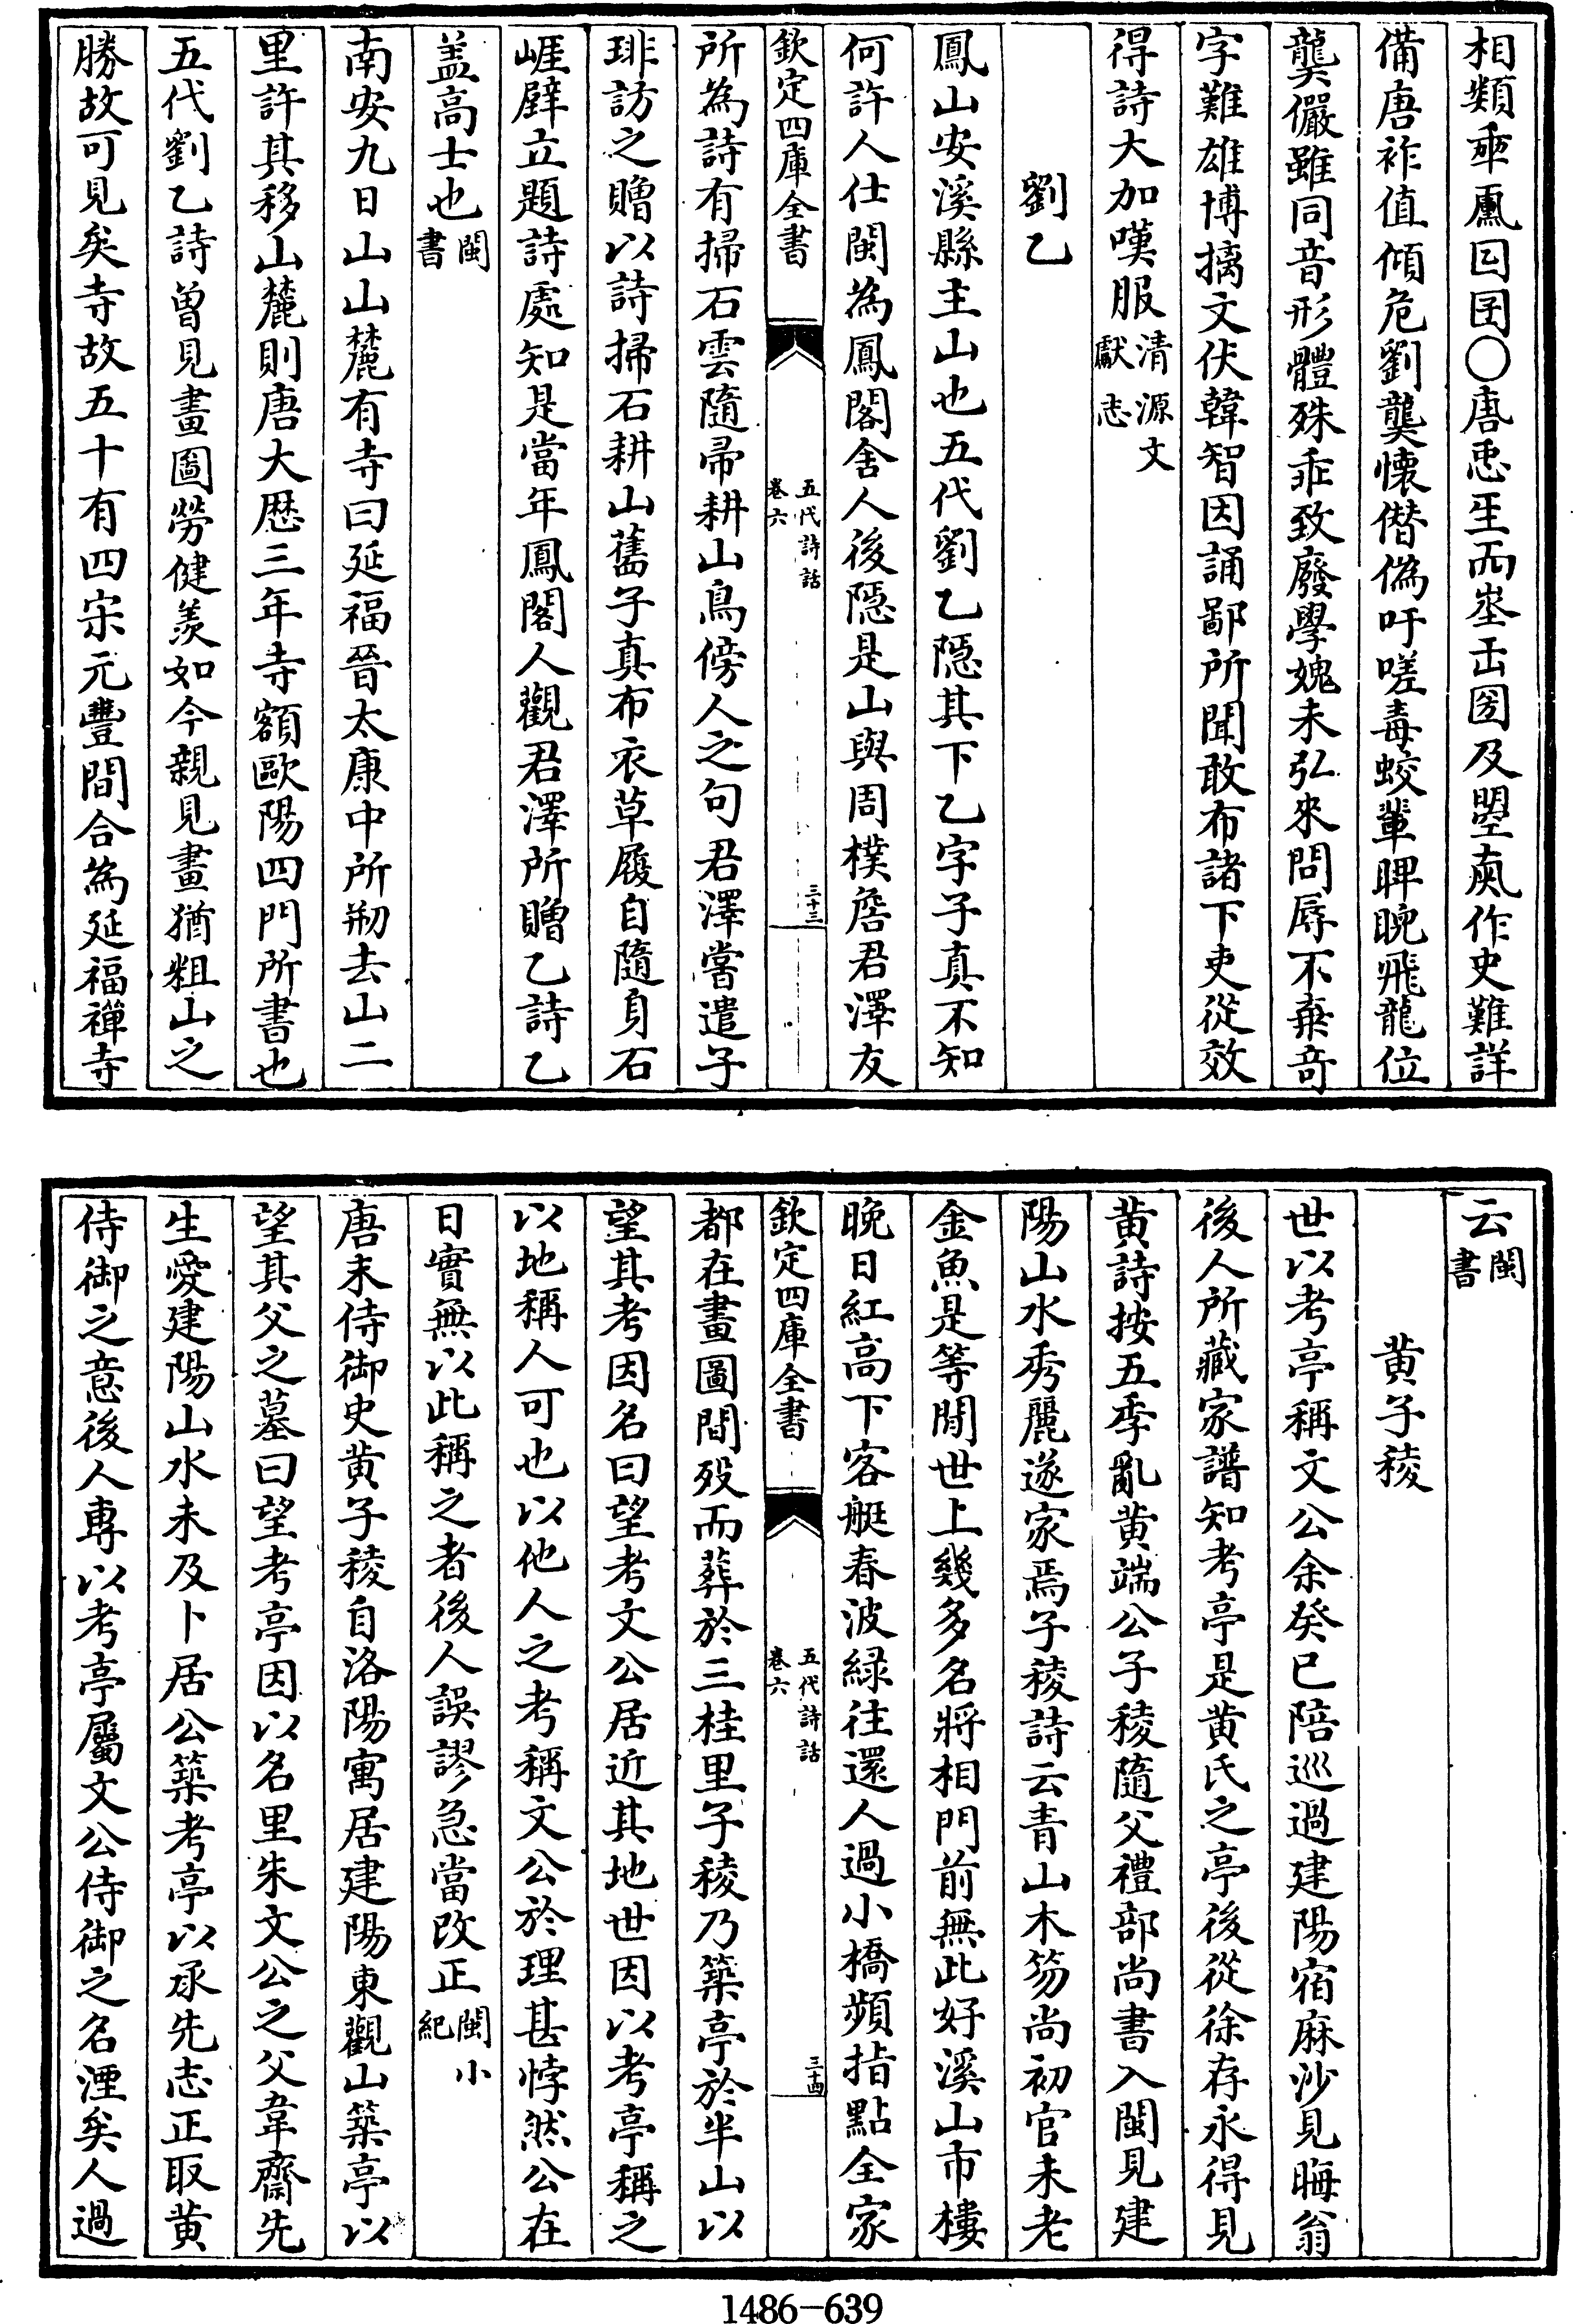 相類𠦜𠪨囙囝〇唐𢘑𤯔而埊𠙺圀及曌𠺞作史難詳
備唐祚值傾危劉龑懷僣偽吁嗟毒蛟輩睥睨飛龍位
龑儼雖同音形體殊乖致廢學媿未弘來問辱不棄竒
字難雄博摛文伏韓智因誦鄙所聞敢布諸下吏從效
得詩大加嘆服清源文獻志
劉乙
鳳山安溪縣主山也五代劉乙隱其下乙字子真不知
何許人仕閩為鳳閣舍人後隱是山與周樸詹君澤友
欽定四庫全書 五代詩話 卷六 三十三
所為詩有掃石雲隨帚耕山鳥傍人之句君澤嘗遣子
琲訪之贈以詩掃石耕山舊子真布衣草履自隨身石
崕壁立題詩處知是當年鳳閣人觀君澤所贈乙詩乙
盖高士也閩書
南安九日山山麓有寺曰延福晉太康中所剏去山二
里許其移山麓則唐大厯三年寺額歐陽四門所書也
五代劉乙詩曾見畫圖勞健羨如今親見畫猶粗山之
勝故可見矣寺故五十有四宋元豐間合為延福禪寺
云閩書
黄子稜
世以考亭稱文公余癸巳陪巡過建陽宿麻沙見晦翁
後人所藏家譜知考亭是黄氏之亭後從徐存永得見
黄詩按五季亂黄端公子稜隨父禮部尚書入閩見建
陽山水秀麗遂家焉子稜詩云青山木笏尚初官未老
金魚是等閒世上幾多名將相門前無此好溪山市樓
晚日紅高下客艇春波緑往還人過小橋頻指點全家
欽定四庫全書 五代詩話 卷六 三十四
都在畫圖間歿而葬於三桂里子稜乃築亭於半山以
望其考因名曰望考文公居近其地世因以考亭稱之
以地稱人可也以他人之考稱文公於理甚悖然公在
日實無以此稱之者後人誤謬急當改正閩小紀
唐末侍御史黄子稜自洛陽寓居建陽東觀山築亭以
望其父之墓曰望考亭因以名里朱文公之父韋齋先
生愛建陽山水未及卜居公築考亭以承先志正取黄
侍御之意後人專以考亭屬文公侍御之名湮矣人過
1486-639